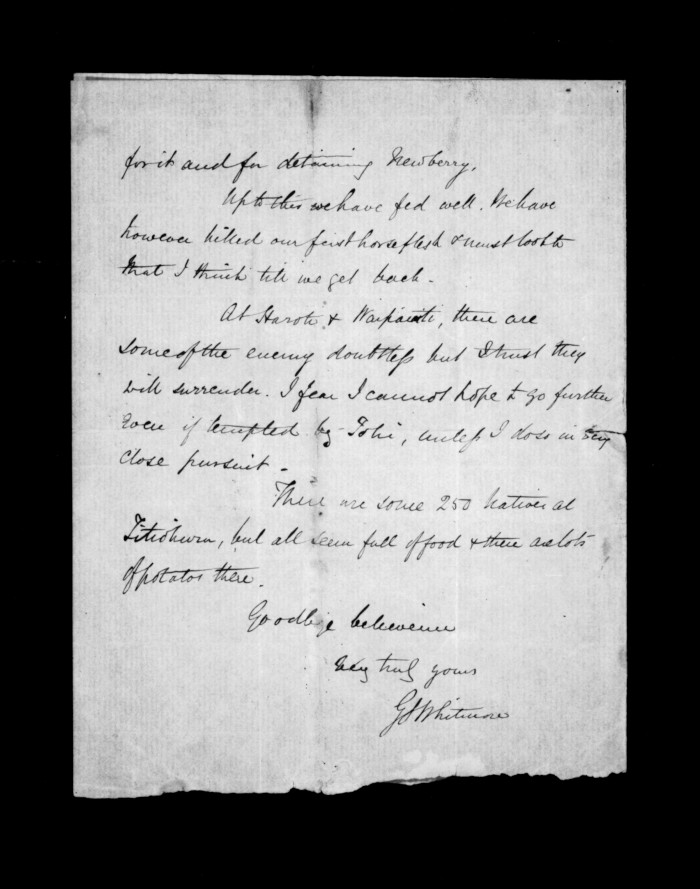 for it and for detaining Newberry.
Up to this we have fed well. We have
however killed our first horseflesh & must look to
that I think till we get back.
At Haroto & Waipaiti, there are
some of the enemy doubtless but I trust they
will surrender. I fear I cannot hope to go further
even if tempted by Tohi, unless I do so in very
close pursuit.
There are some 250 Natives at
Titiokura, but all seem full of food & there are lots
of potatos there.
Goodbye believe me
Very truly yours
GS Whitmore